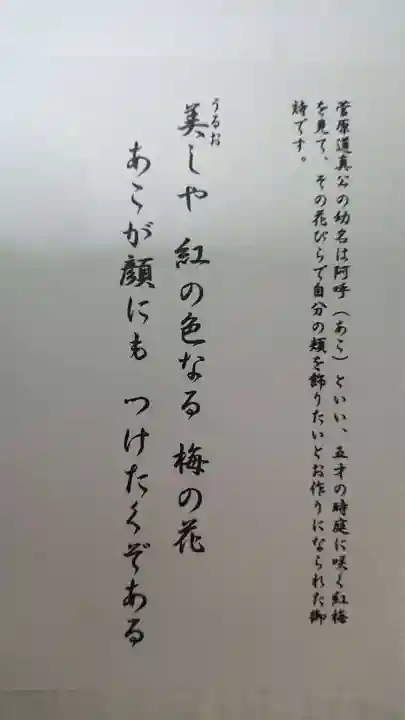 菅原道真公の幼名は阿呼（あこ）といい、五才の時庭に咲く紅梅
を見て、その花びらで自分の頬を飾りたいとお作りになられた御
詩です。
うるお
美しや 紅の色なる 梅の花
あこが顔にも つけたくぞある